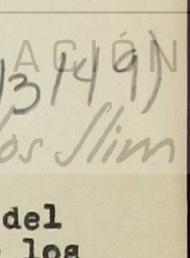 ACIÓN
13/49)
los Slim
del
los